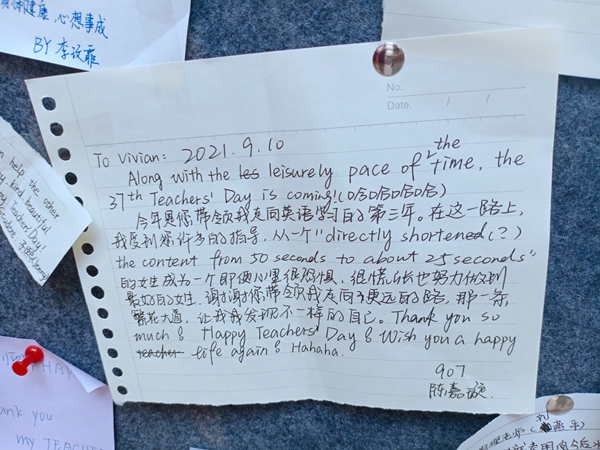 身体健康 心想事成
BY 李汶霏
No.
Date. / /
To Vivian: 2021.9.10
Along with the les leisurely pace of the time, the
37th Teachers' Day is coming!(哈哈哈哈)
今年是你带领我走向英语学习的第三年。在这一路上,
我受到你许多的指导,从一个"directly shortened(?)
the content from 50 seconds to about 25 seconds"
的女生成为一个即便心里很恐惧、很慌张也努力做到
最好的女生,谢谢你带领我走向了更远的路,那一条
繁花大道,让我发现不一样的自己。Thank you so
much! Happy Teachers' Day! Wish you a happy
teacher life again! Hahaha.
907
陈嘉
help the other
kind beautiful
Teacher Day!
ank you
my TEACHE